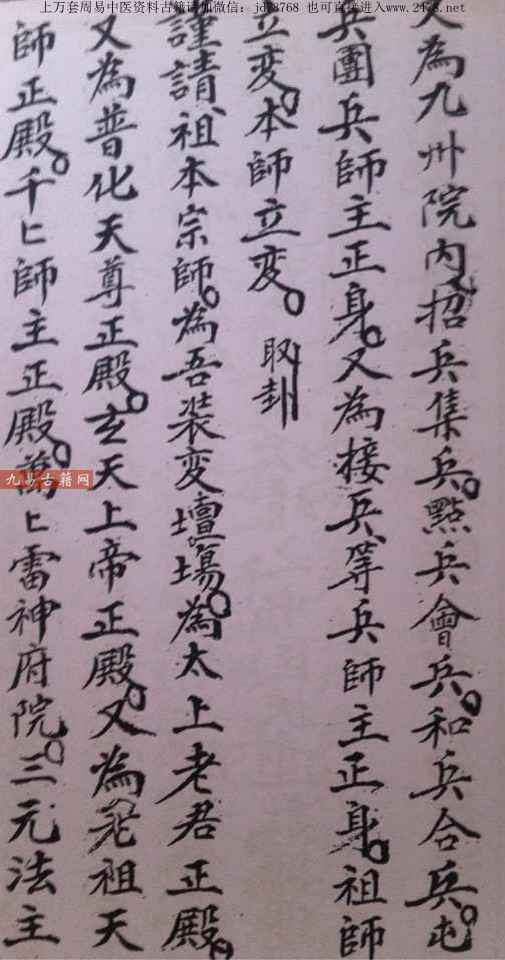 上万套周易中医资料古籍请加微信：jd78768 也可直接进入www.2478.net
又為九州院内招兵集兵。點兵會兵。和兵合兵。屯
兵團兵師主正身。又為接兵等兵師主正身。祖師
立变。本師立变。取卦
謹請祖本宗師。為吾装变壇場。為太上老君正殿。
又為普化天尊正殿。玄天上帝正殿。又為老祖天
師正殿。千匕師主正殿。萬匕雷神府院。三元法主
九易古籍网